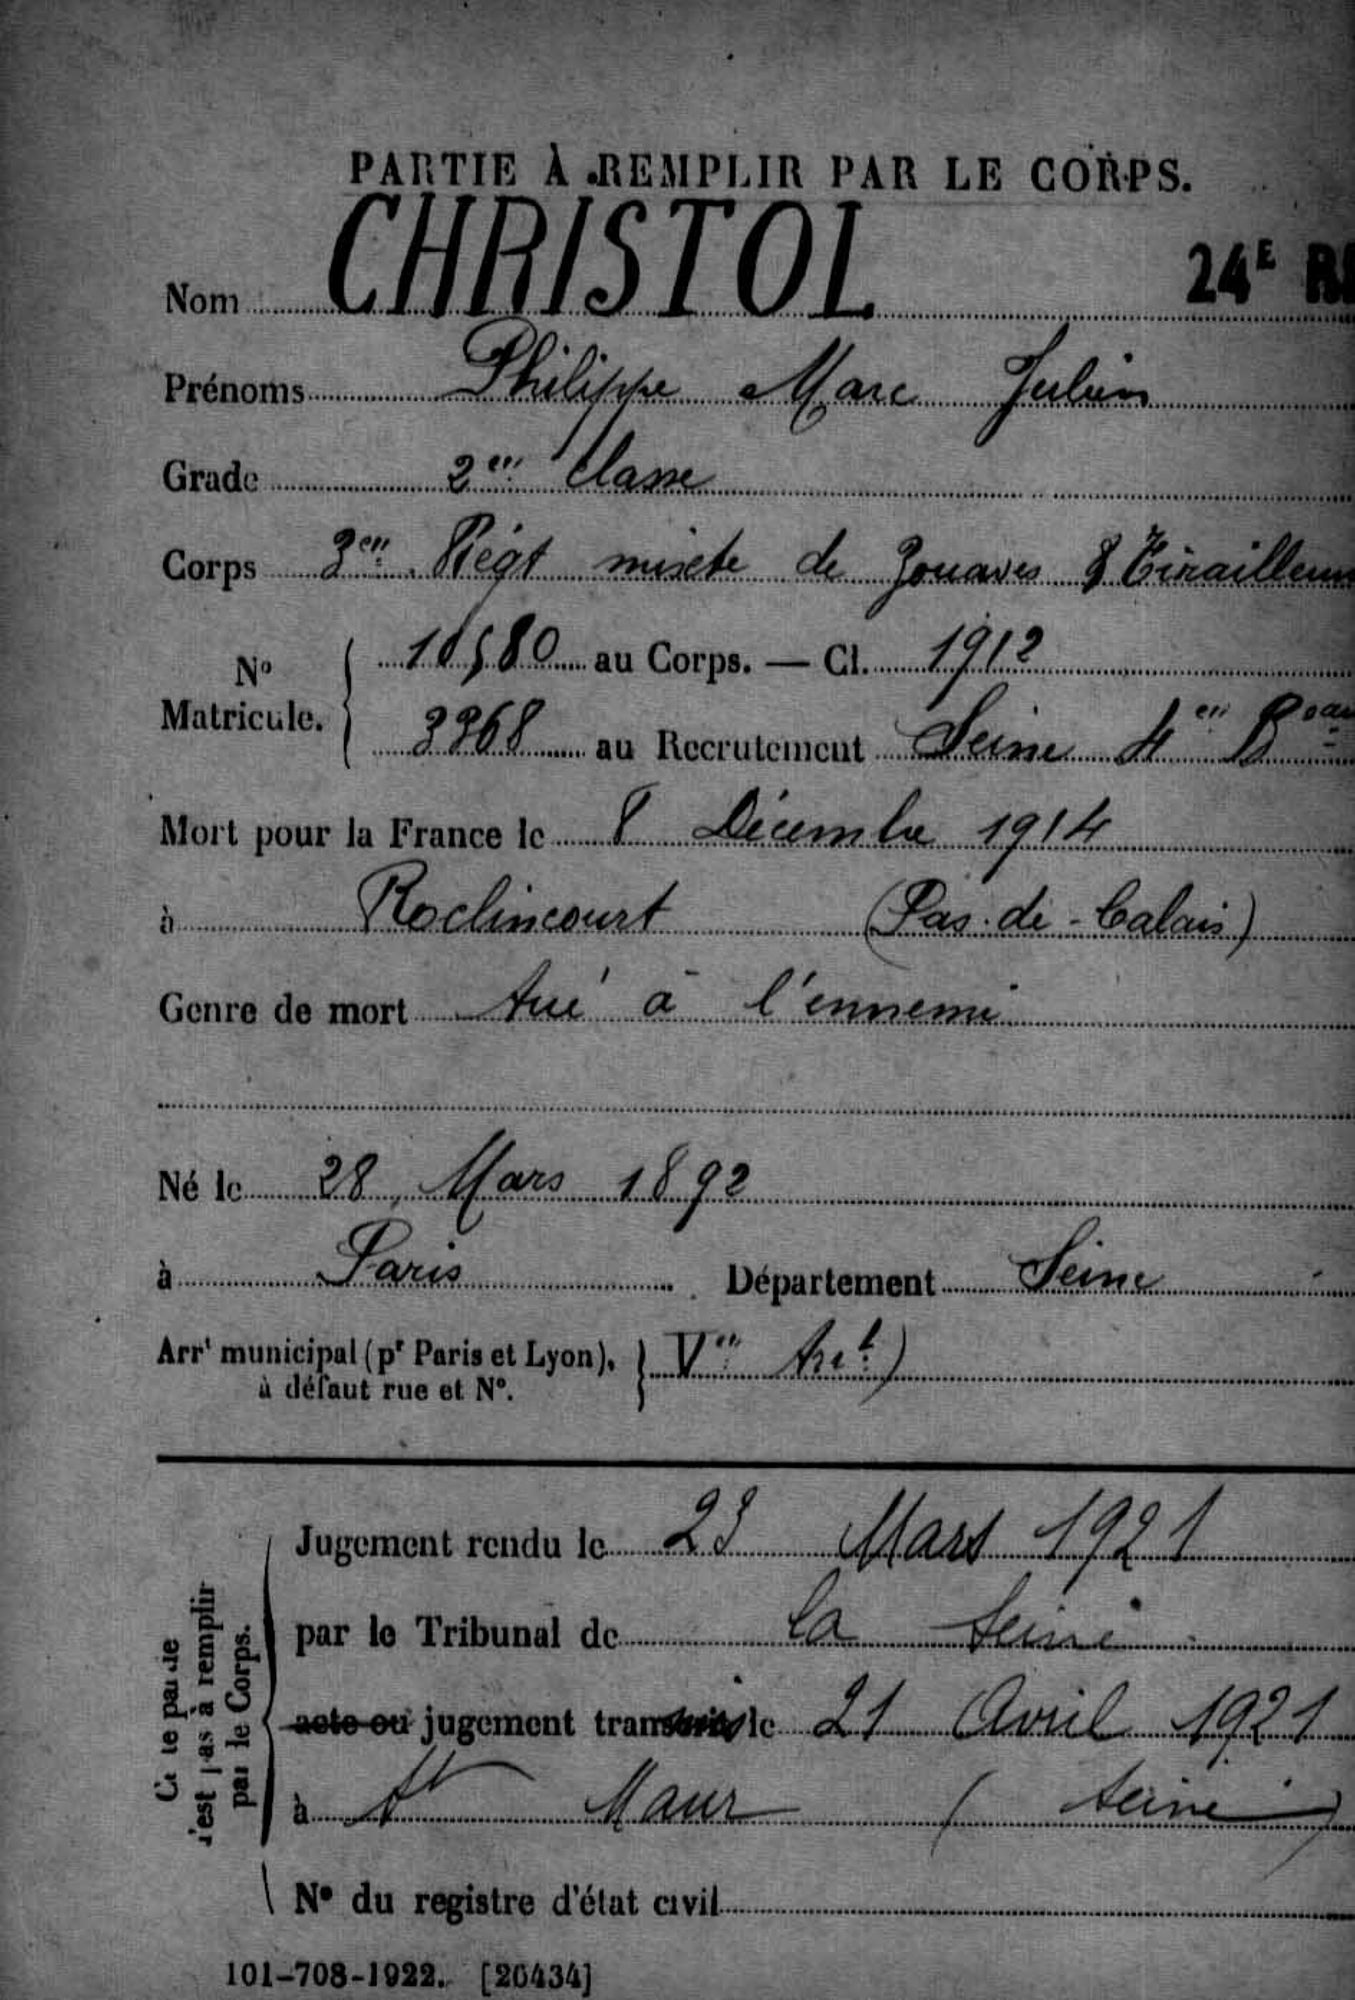 PARTIE À REMPLIR PAR LE CORPS.
Nom CHRISTOL 24E
Prénoms Philippe Marc Julien
Grade 2em Classe
Corps 3em Régt mixte de Zouaves & Tirailleurs
No Matricule. 10580 au Corps. — Cl. 1912
3368 au Recrutement Seine 4em Beau
Mort pour la France le 8 Décembre 1914
à Roclincourt (Pas-de-Calais)
Genre de mort tué à l'ennemi
Né le 28 Mars 1892
à Paris Département Seine
Arrt municipal (pr Paris et Lyon), à défaut rue et No. Vem Arrt)
Cette partie n'est pas à remplir par le Corps.
Jugement rendu le 23 Mars 1921
par le Tribunal de la Seine
acte ou jugement transcrit le 21 Avril 1921
à St Maur (Seine)
No du registre d'état civil
101-708-1922. [26434]